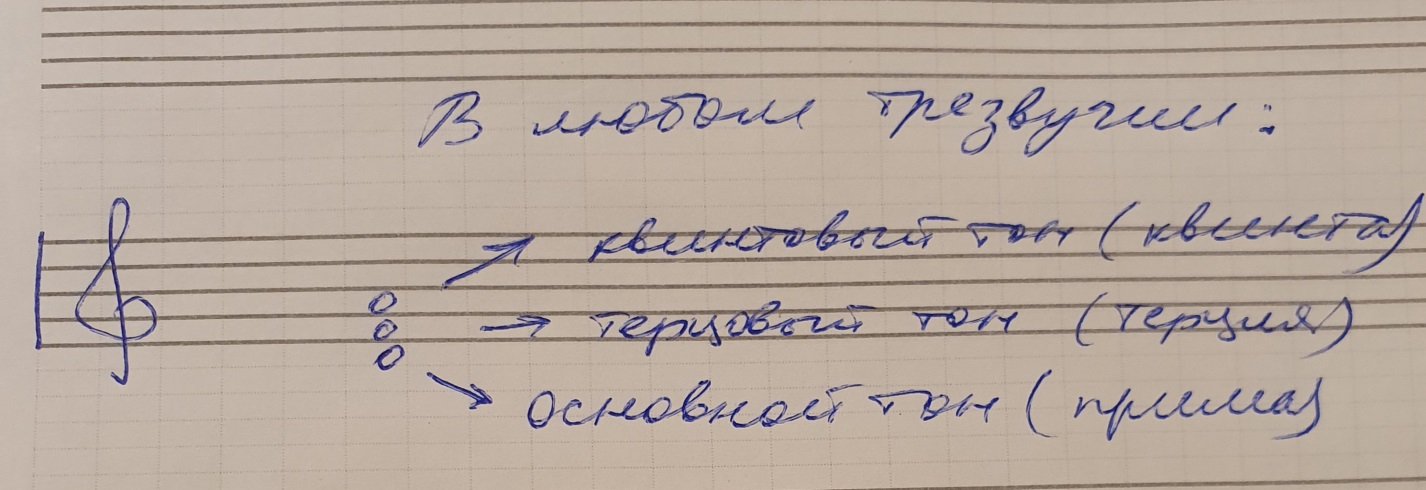 В любом трезвучии:
квинтовый тон (квинта)
терцовый тон (терция)
основной тон (прима)